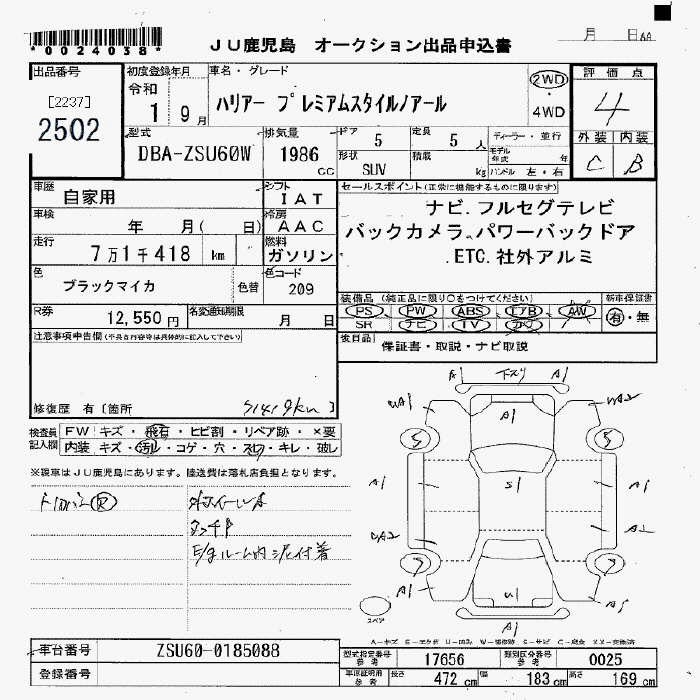 *0024038*
JU鹿児島 オークション出品申込書
月 日
出品番号
[2237]
2502
初度登録年月
令和
1 9月
車名・グレード
ハリアー プレミアムスタイルノアール
2WD
・
4WD
評価点
4
外装 内装
C B
型式
DBA-ZSU60W
排気量
1986
cc
ドア
5
定員
5人
形状
SUV
積載
kg
ディーラー・並行
モデル年式 年
ハンドル 左・右
車歴
自家用
シフト
IAT
車検
年 月( 日)
冷房
AAC
走行
7万1千418 km
燃料
ガソリン
色
ブラックマイカ
色替
色コード
209
R券
12,550円
名変通知期限
月 日
セールスポイント(正常に機能するものに限ります)
ナビ.フルセグテレビ
バックカメラ.パワーバックドア
.ETC.社外アルミ
装備品(純正品に限り○をつけてください)
新車保証書
PS PW ABS エアB AW
SR ナビ TV カワ
有・無
後日品
保証書・取説・ナビ取説
注意事項申告欄(不具合内容等は具体的に記入して下さい)
修復歴 有〔箇所
71419km〕
検査員
記入欄
FW キズ・飛石・ヒビ割・リペア跡・×要
内装 キズ・汚れ・コゲ・穴・スレ・キレ・破レ
※現車はJU鹿児島にあります。陸送費は落札店負担となります。
外ホイールキズ
タッチP
E/gルーム内泥付着
A1 下スリ A1
UA1 A1 UA2
5 5
A1 S1 A1
UA2 A2
7 7
A1 U1 A1
A1
スペア
車台番号
ZSU60-0185088
登録番号
型式指定番号
参考
17656
類別区分番号
参考
0025
車庫証明用
参考
長さ 472 cm 幅 183 cm 高さ 169 cm